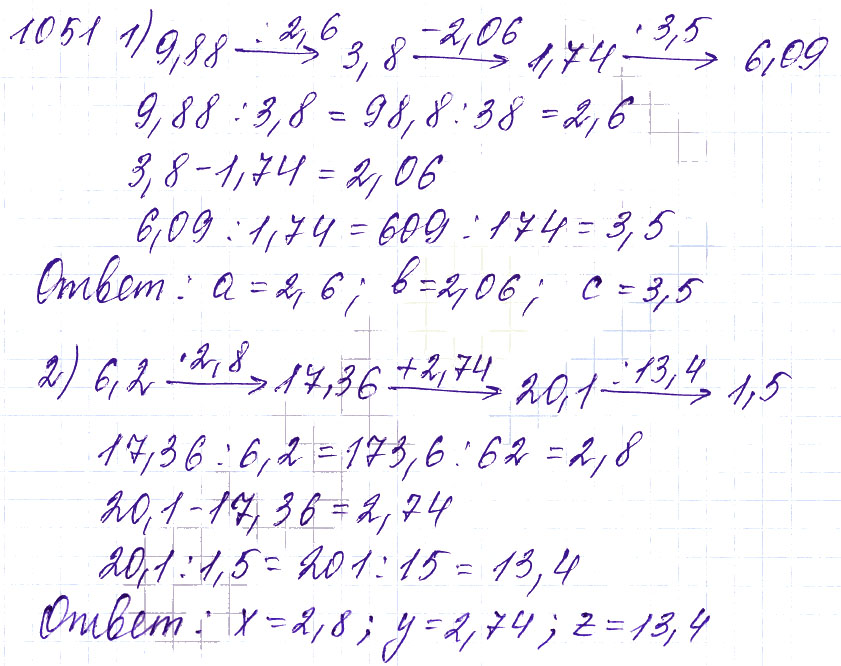 1051 1) 9,88 :2,6→ 3,8 -2,06→ 1,74 ·3,5→ 6,09
9,88 : 3,8 = 98,8 : 38 = 2,6
3,8 - 1,74 = 2,06
6,09 : 1,74 = 609 : 174 = 3,5
Ответ: a = 2,6; b = 2,06; c = 3,5
2) 6,2 ·2,8→ 17,36 +2,74→ 20,1 :13,4→ 1,5
17,36 : 6,2 = 173,6 : 62 = 2,8
20,1 - 17,36 = 2,74
20,1 : 1,5 = 201 : 15 = 13,4
Ответ: x = 2,8; y = 2,74; z = 13,4